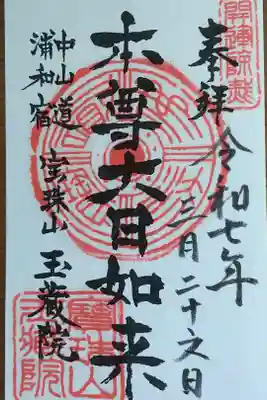 奉拝
令和七年
三月二十六日
本尊大日如来
中山道
浦和宿
宝珠山
玉蔵院